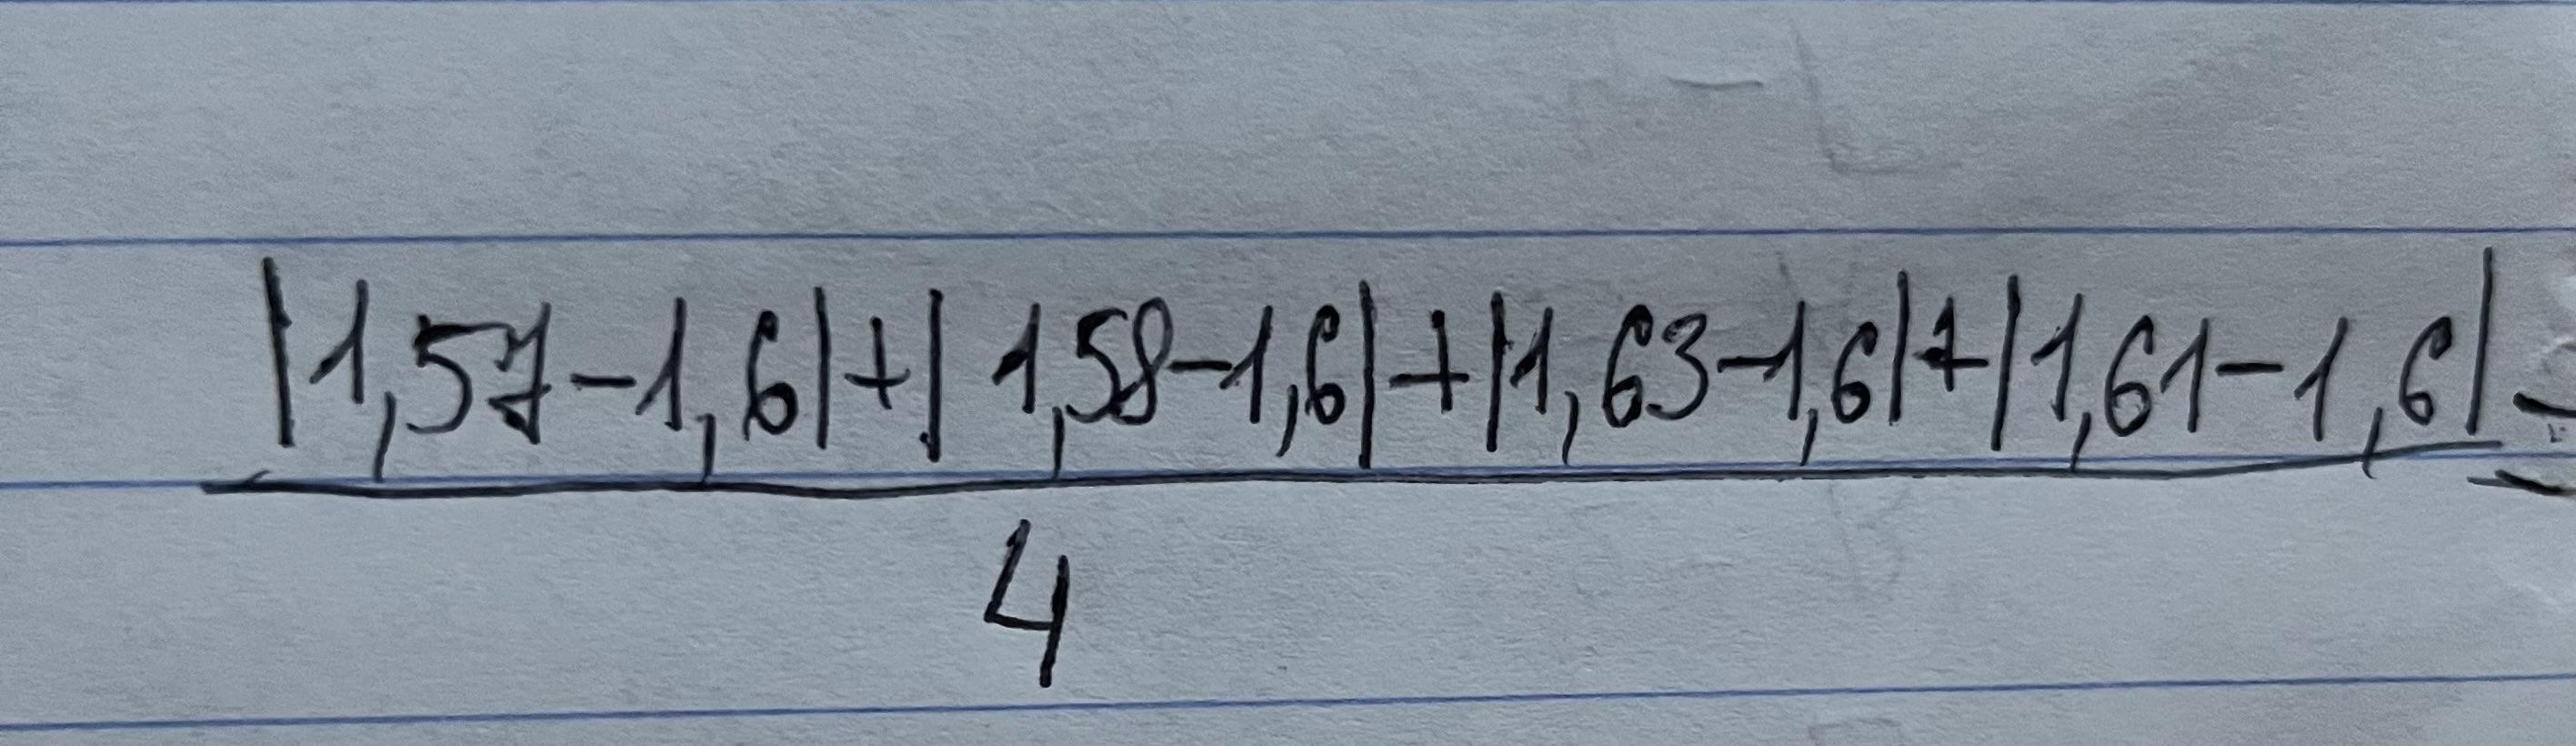 |1,57-1,6|+|1,58-1,6|+|1,63-1,6|+|1,61-1,6| =
4